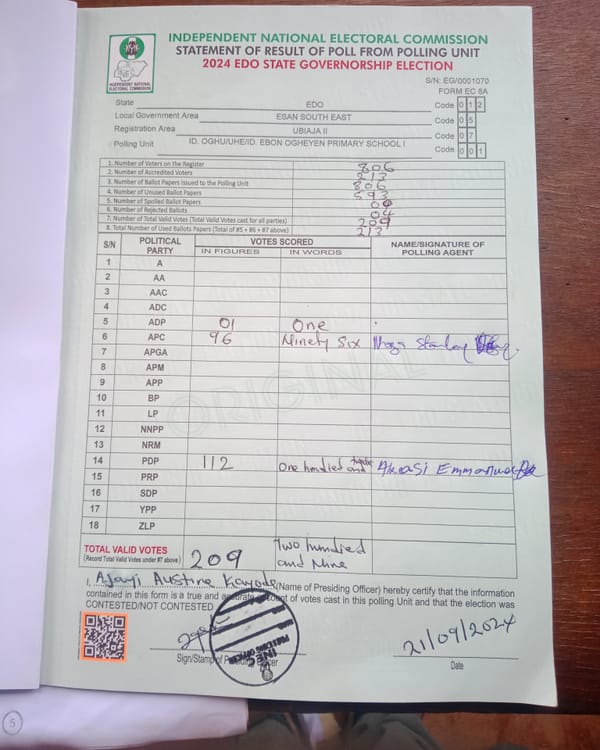 INDEPENDENT NATIONAL ELECTORAL COMMISSION
STATEMENT OF RESULT OF POLL FROM POLLING UNIT
2024 EDO STATE GOVERNORSHIP ELECTION
INEC
INDEPENDENT NATIONAL
ELECTORAL COMMISSION
S/N: EG/0001070
FORM EC 8A
State EDO Code 0 1 2
Local Government Area ESAN SOUTH EAST Code 0 5
Registration Area UBIAJA II Code 0 7
Polling Unit ID. OGHU/UHE/ID. EBON OGHEYEN PRIMARY SCHOOL I Code 0 0 1
1. Number of Voters on the Register 806
2. Number of Accredited Voters 213
3. Number of Ballot Papers Issued to the Polling Unit 806
4. Number of Unused Ballot Papers 593
5. Number of Spoiled Ballot Papers 00
6. Number of Rejected Ballots 04
7. Number of Total Valid Votes (Total Valid Votes cast for all parties) 209
8. Total Number of Used Ballots Papers (Total of #5 + #6 + #7 above) 213
S/N POLITICAL PARTY VOTES SCORED NAME/SIGNATURE OF POLLING AGENT
IN FIGURES IN WORDS
1 A
2 AA
3 AAC
4 ADC
5 ADP 01 One
6 APC 96 Ninety Six Stanley
7 APGA
8 APM
9 APP
10 BP
11 LP
12 NNPP
13 NRM
14 PDP 112 One hundred and twelve Emmanuel
15 PRP
16 SDP
17 YPP
18 ZLP
ORIGINAL
TOTAL VALID VOTES 209 Two hundred
(Record Total Valid Votes under #7 above) and Nine
I, Ajayi Austine Kayode (Name of Presiding Officer) hereby certify that the information
contained in this form is a true and accurate account of votes cast in this polling Unit and that the election was
CONTESTED/NOT CONTESTED
INEC
PRESIDING OFFICER
21/09/2024
Sign/Stamp of Presiding Officer
Date
5